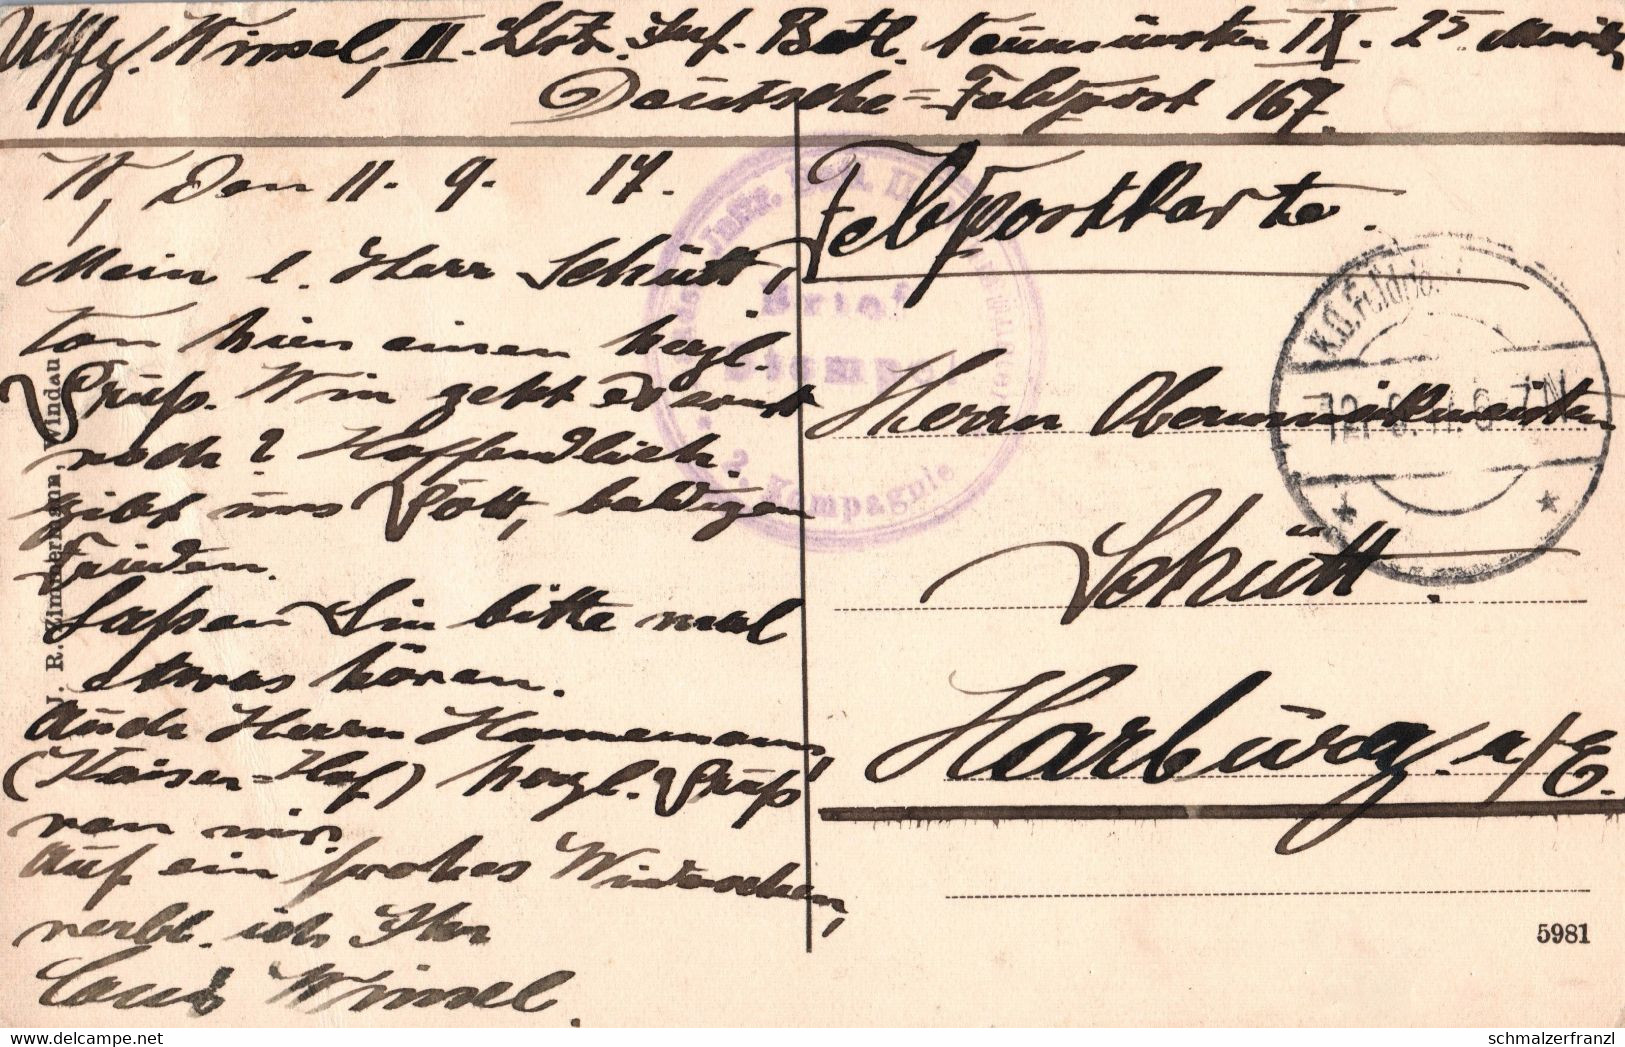 Uffz. Winsel, II. Ldst. Inf. Batl. Neumünster IX. 25
Deutsche=Feldpost 167.
W, Den 11. 9. 17.
Mein l. Herr Schütt,
von hier einen herzl.
Gruß. Wie geht es sonst
noch? Hoffendlich
gibt uns Gott, baldigen
Frieden.
Laßen Sie bitte mal
etwas hören.
Auch Herrn Hannemann,
(Kaiser=Hof) herzl. Gruß
von mir.
Auf ein frohes Wiedersehen,
verbl. ich Ihr
Louis Winsel.
Feldpostkarte.
Herrn Obermusikmeister
Schütt.
Harburg. a/E.
Brief
Stempel
2. Kompagnie
K.D. Feldpo
J. R. Zimmermann, Windau
5981
schmalzerfranzl